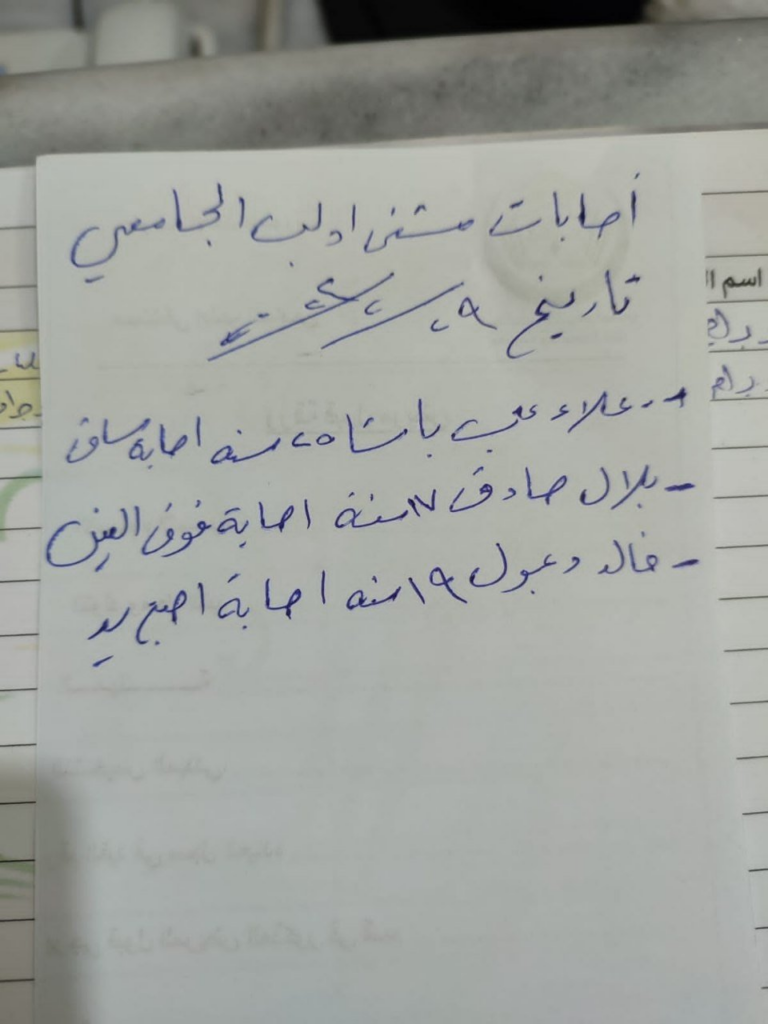 أصابات مشفى ادلب الجامعي
تاريخ ٢٩
- علاء باشا ٢٥ سنه اصابة ساق
- بلال صادق ١٧ سنة اصابة فوق العين
- خالد دعبول ١٩ سنه اصابة اصبع يد
اسم ال